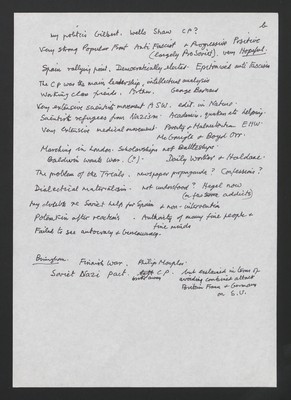 my politics Gilbert. Wells Shaw C P?
Very strong Popular Front Anti Fascist & Progressive Positive
(largely Pro Soviet). very Hopeful.
Spain rallying point. Democratically elected. Epitomized anti Fascism
The C P was the main leadership, intellectual analysis
Working class friends. Arthur. George Barnard
Very extensive scientists movement A S W. edit. in Nature.
Scientists refugees from Nazism. Academics, quakers etc helping.
Very extensive medical movement. Poverty & Malnutrition E.H.W.
McGonigle & Boyd Orr.
Marching in London. Scholarships not Battleships
Baldwin would was. (?) Daily Worker & Haldane.
The problem of the Trials. newspaper propaganda? Confessions?
Dialectical materialism. not understood? Hegel now
My doubts re Soviet help for Spain & non-intervention
Potential after reaction. Authority of many fine people &
fine minds
Failed to see autocracy & bureaucracy.
Birmingham. Finnish War. Philip Morphy.
Soviet Nazi pact. C.P. but explained in terms of
avoiding combined attack
Britain France & Germany
on S.U.